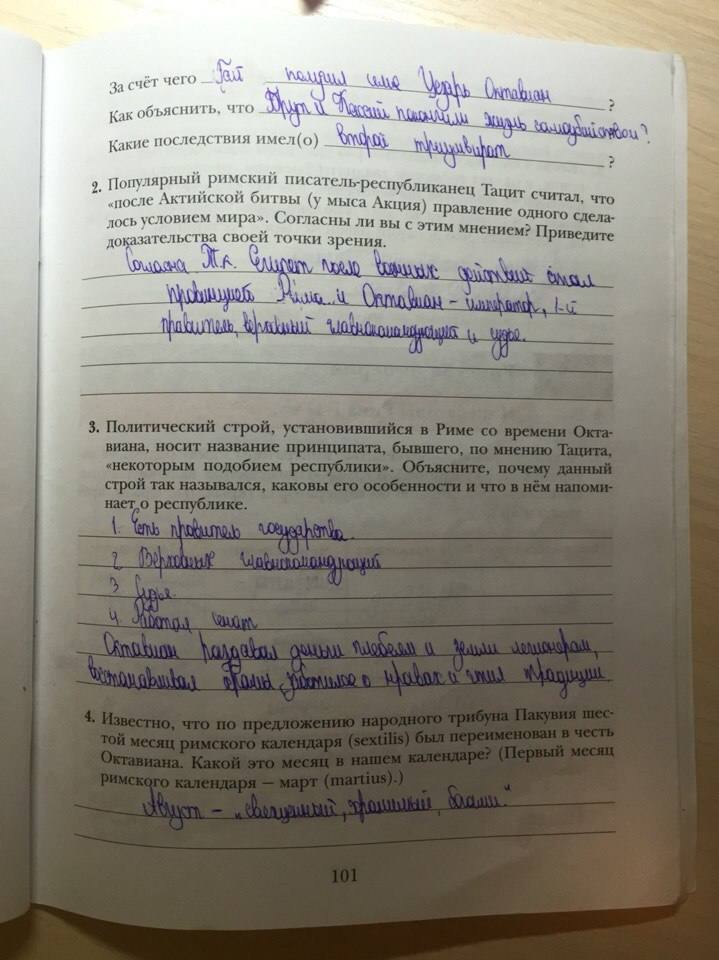 За счёт чего Гай получил имя Цезарь Октавиан ?
Как объяснить, что Брут и Кассий покончили жизнь самоубийством ?
Какие последствия имел(о) второй триумвират ?
2. Популярный римский писатель-республиканец Тацит считал, что
«после Актийской битвы (у мыса Акция) правление одного сдела-
лось условием мира». Согласны ли вы с этим мнением? Приведите
доказательства своей точки зрения.
Согласна Т.к. Египет после военных действий стал
провинцией Рима и Октавиан - император, 1-й
правитель, верховный главнокомандующий и судья.
3. Политический строй, установившийся в Риме со времени Окта-
виана, носит название принципата, бывшего, по мнению Тацита,
«некоторым подобием республики». Объясните, почему данный
строй так назывался, каковы его особенности и что в нём напоми-
нает о республике.
1. Есть правитель государства.
2 Верховных главнокомандующий
3 Судья.
4. Работал сенат
Октавиан раздавал деньги плебеям и земли легионерам,
восстанавливал храмы, заботился о нравах и чтил традиции
4. Известно, что по предложению народного трибуна Пакувия шес-
той месяц римского календаря (sextilis) был переименован в честь
Октавиана. Какой это месяц в нашем календаре? (Первый месяц
римского календаря — март (martius).)
Август - "священный, хранимый, богами."
101